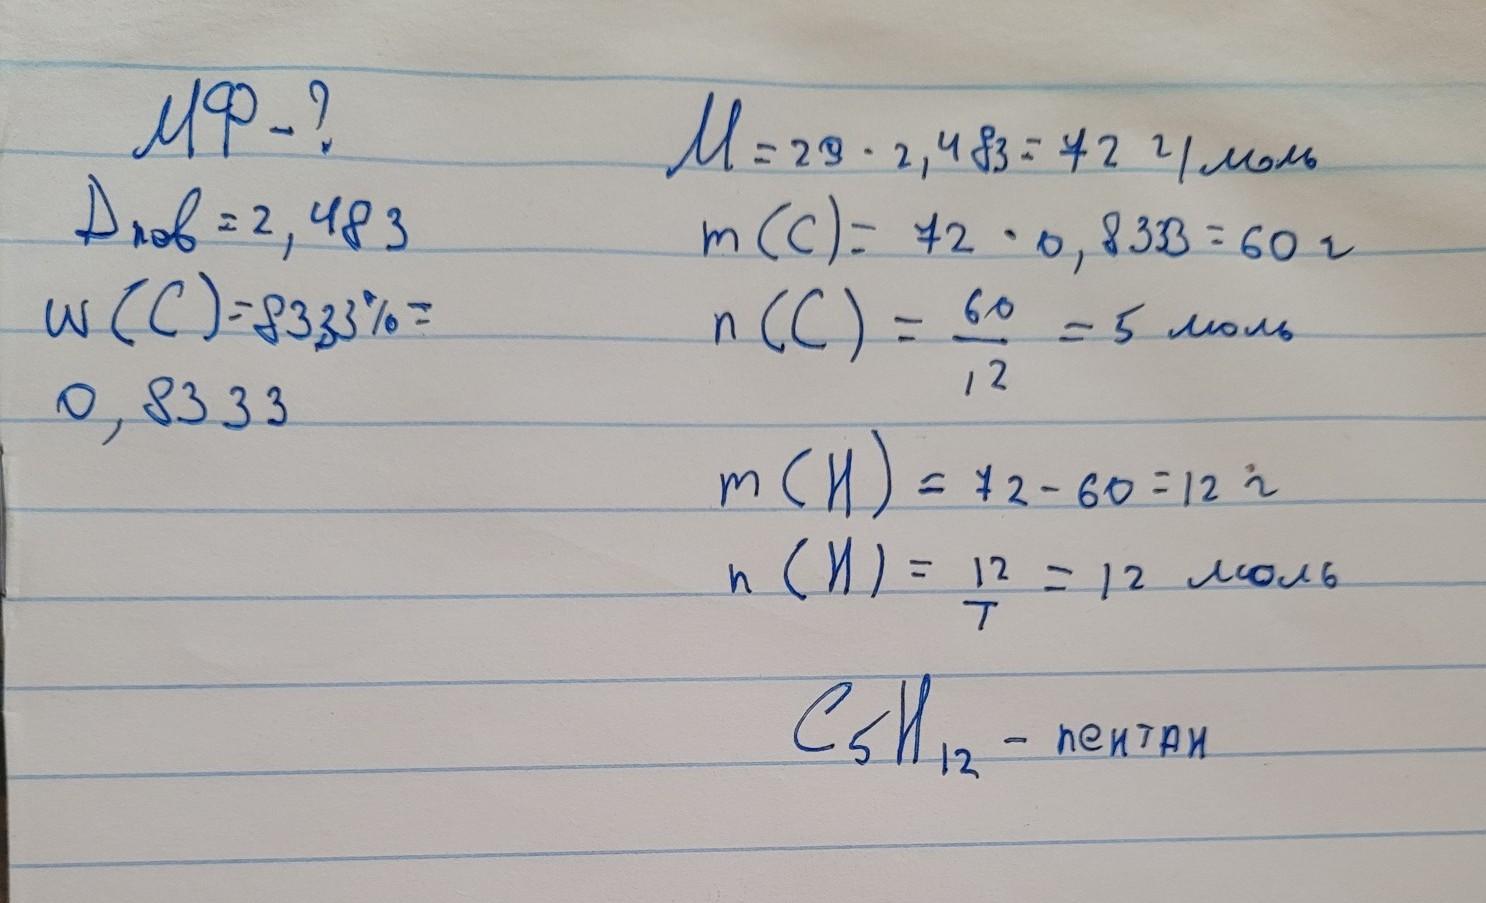 МФ-?
Dпов=2,483
w(C)=83,33%=
0,8333
M=29·2,483=72 г/моль
m(C)=72·0,8333=60 г
n(C)=60/12=5 моль
m(H)=72-60=12 г
n(H)=12/1=12 моль
C₅H₁₂ - пентан